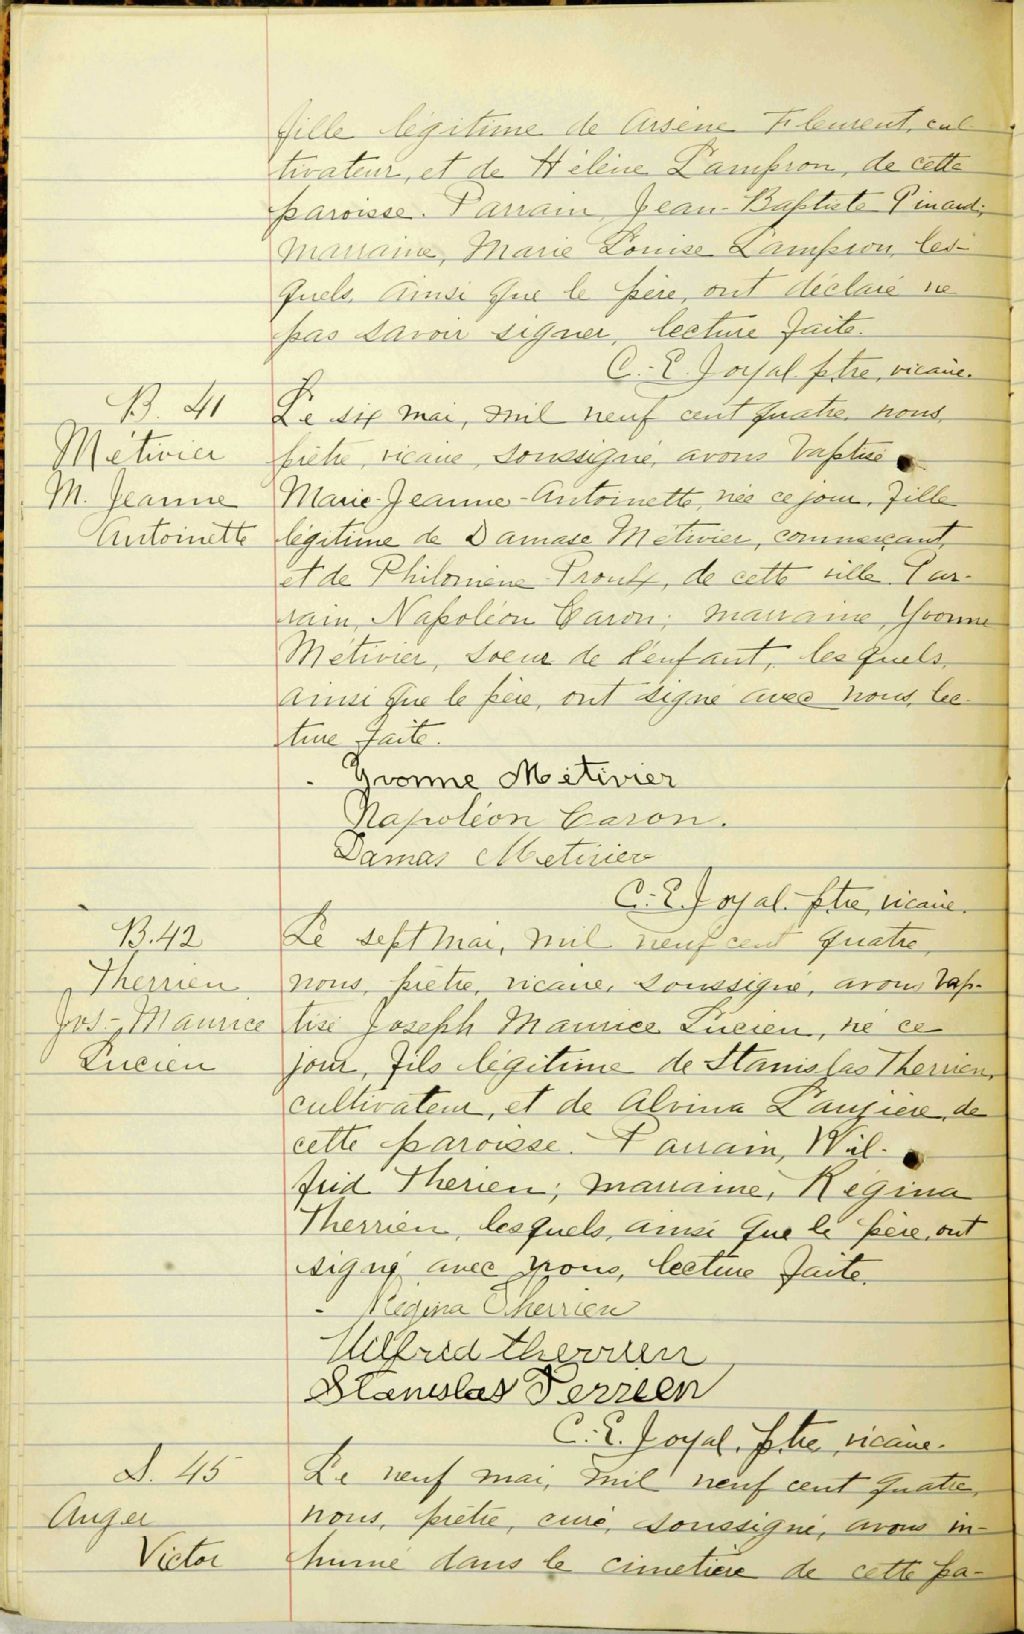 fille légitime de Arsène Fleurent, cul-
tivateur, et de Hélène Lampron, de cette
paroisse. Parrain, Jean-Baptiste Pinard;
marraine, Marie Louise Lampron, les-
quels, ainsi que le père, ont déclaré ne
pas savoir signer, lecture faite.
C.-E. Joyal. ptre, vicaire.
B. 41
Métivier
M. Jeanne
Antoinette
Le six mai, mil neuf cent quatre, nous,
prêtre, vicaire, soussigné, avons baptisé
Marie-Jeanne-Antoinette, née ce jour, fille
légitime de Damase Métivier, commerçant,
et de Philomène Proulx, de cette ville. Par-
rain, Napoléon Caron; marraine, Yvonne
Métivier, soeur de l'enfant, lesquels,
ainsi que le père, ont signé avec nous, lec-
ture faite.
Yvonne Métivier
Napoléon Caron.
Damas Metivier
C.-E. Joyal. ptre, vicaire.
B. 42
Therrien
Jos.-Maurice
Lucien
Le sept mai, mil neuf cent quatre,
nous, prêtre, vicaire, soussigné, avons bap-
tisé Joseph Maurice Lucien, né ce
jour, fils légitime de Stanislas Therrien,
cultivateur, et de Alvina Lauzière, de
cette paroisse. Parrain, Wil-
frid Therien; marraine, Régina
Therrien, lesquels, ainsi que le père, ont
signé avec nous, lecture faite.
Régina Therrien
Wilfrid therrien
Stanislas Terrien
C.-E. Joyal, ptre, vicaire.
S. 45
Auger
Victor
Le neuf mai, mil neuf cent quatre,
nous, prêtre, curé, soussigné, avons in-
humé dans le cimetière de cette pa-